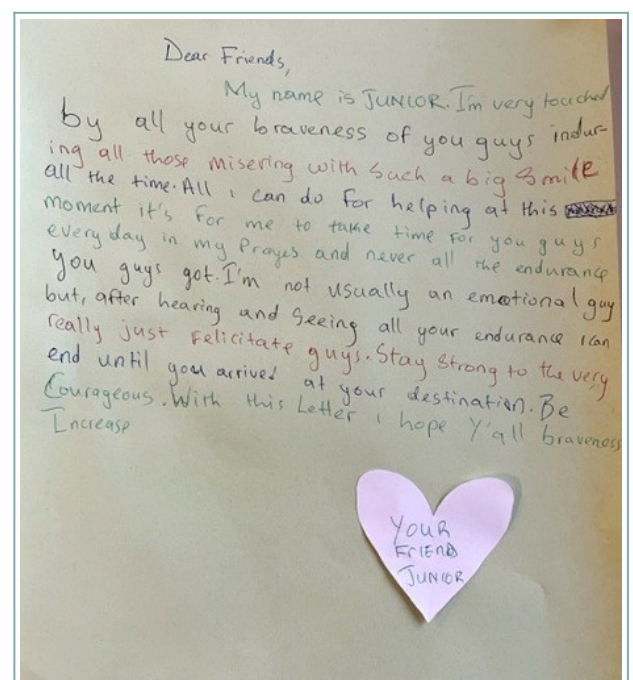 Dear Friends,
My name is JUNIOR. I'm very touched
by all your braveness of you guys indur-
ing all those misering with such a big smile
all the time. All i can do for helping at this
moment it's for me to take time for you guys
every day in my Prayes and never all the endurance
you guys got. I'm not usually an emotional guy
but, after hearing and seeing all your endurance i can
really just Felicitate guys. Stay strong to the very
end until you arrived at your destination. Be
Courageous. With this Letter i hope Y'all braveness
Increase
YOUR
FRIEND
JUNIOR